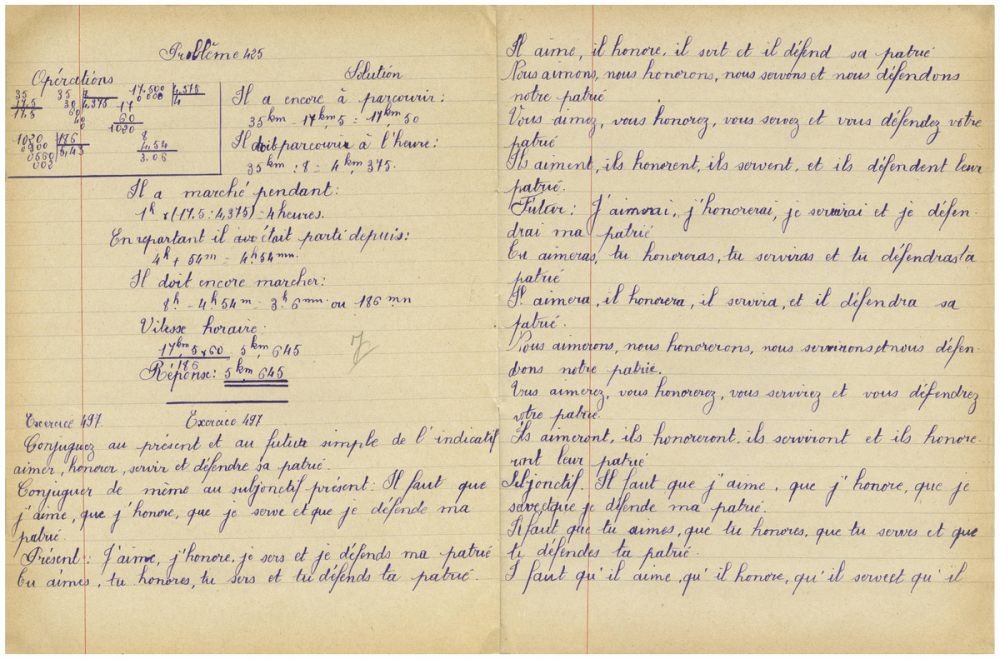 Problème 425
Opérations
35 35 8 17.500 4,375
17.5 30 4,375 0000 4
17.5 60 17
60
1020
1020 186 8
0900 5,45 4,54
0560 3.06
000
Solution
Il a encore à parcourir :
35km - 17km,5 = 17km 50
Il doit parcourir à l'heure :
35km : 8 = 4km,375.
Il a marché pendant :
1h x (17.5 : 4,375) = 4 heures.
En repartant il était parti depuis :
4h + 54m = 4h 54mn.
Il doit encore marcher :
8h - 4h 54m = 3h 6mn ou 186 mn
Vitesse horaire :
17km,5 x 60 5km,645
186
Réponse : 5km,645
7
Exercice 497 Exercice 497
Conjuguez au présent et au futur simple de l'indicatif
aimer, honorer, servir et défendre sa patrié.
Conjuguer de même au subjonctif présent : Il faut que
j'aime, que j'honore, que je serve et que je défende ma
patrié.
Présent : J'aime, j'honore, je sers et je défends ma patrié
Tu aimes, tu honores, tu sers et tu défends ta patrié.
Il aime, il honore, il sert et il défend sa patrié
Nous aimons, nous honorons, nous servons et nous défendons
notre patrié
Vous aimez, vous honorez, vous servez et vous défendez votre
patrié
Ils aiment, ils honorent, ils servent, et ils défendent leur
patrié.
Futur : J'aimerai, j'honorerai, je servirai et je défen-
drai ma patrié
Tu aimeras, tu honoreras, tu serviras et tu défendras ta
patrié
Il aimera, il honorera, il servira, et il défendra sa
patrié.
Nous aimerons, nous honorerons, nous servirons et nous défen-
drons notre patrié.
Vous aimerez, vous honorerez, vous servirez et vous défendrez
votre patrié.
Ils aimeront, ils honoreront, ils serviront et ils honore-
ront leur patrié
Subjonctif. Il faut que j'aime, que j'honore, que je
serve et que je défende ma patrié.
Il faut que tu aimes, que tu honores, que tu serves et que
tu défendes ta patrié.
I faut qu'il aime, qu'il honore, qu'il serve et qu'il